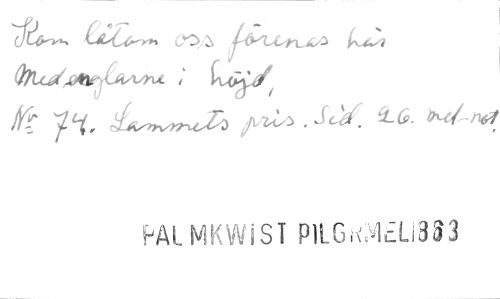 Kom låtom oss förenas här
Med englarne i höjd,
Nr 74. Lammets pris. Sid. 26. med not.
PALMKWIST PILGRMEL1863